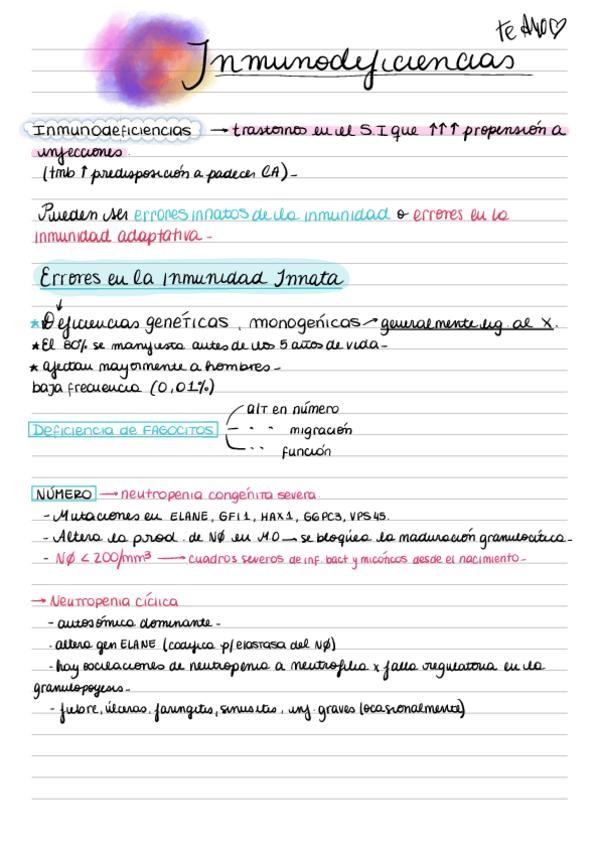 te Amo♡
Inmunodeficiencias
Inmunodeficiencias → trastornos en el S.I que ↑↑↑ propensión a
infecciones.
(tmb ↑ predisposición a padecer CA)-
Pueden ser errores innatos de la inmunidad o errores en la
inmunidad adaptativa -
Errores en la Inmunidad Innata
↓
★Deficiencias genéticas, monogénicas → generalmente lig. al X.
★El 80% se manifiesta antes de los 5 años de vida-
★ afectan mayormente a hombres-
baja frecuencia (0,01%)
Deficiencia de FAGOCITOS
alT en número
- · · migración
· · función
NÚMERO → neutropenia congénita severa
- Mutaciones en ELANE, GFI1, HAX1, G6PC3, VPS45.
- Altera la prod. de NØ en M.O → se bloquea la maduración granulocítica-
- NØ < 200/mm³ → cuadros severos de inf. bact y micóticos desde el nacimiento-
→ Neutropenia cíclica
- autosómica dominante-
- altera gen ELANE (codifica p/elastasa del NØ)
- hay oscilaciones de neutropenia a neutrofilia x falla regulatoria en la
granulopoyesis-
- fiebre, úlceras, faringitis, sinusitis, inf. graves (ocasionalmente)